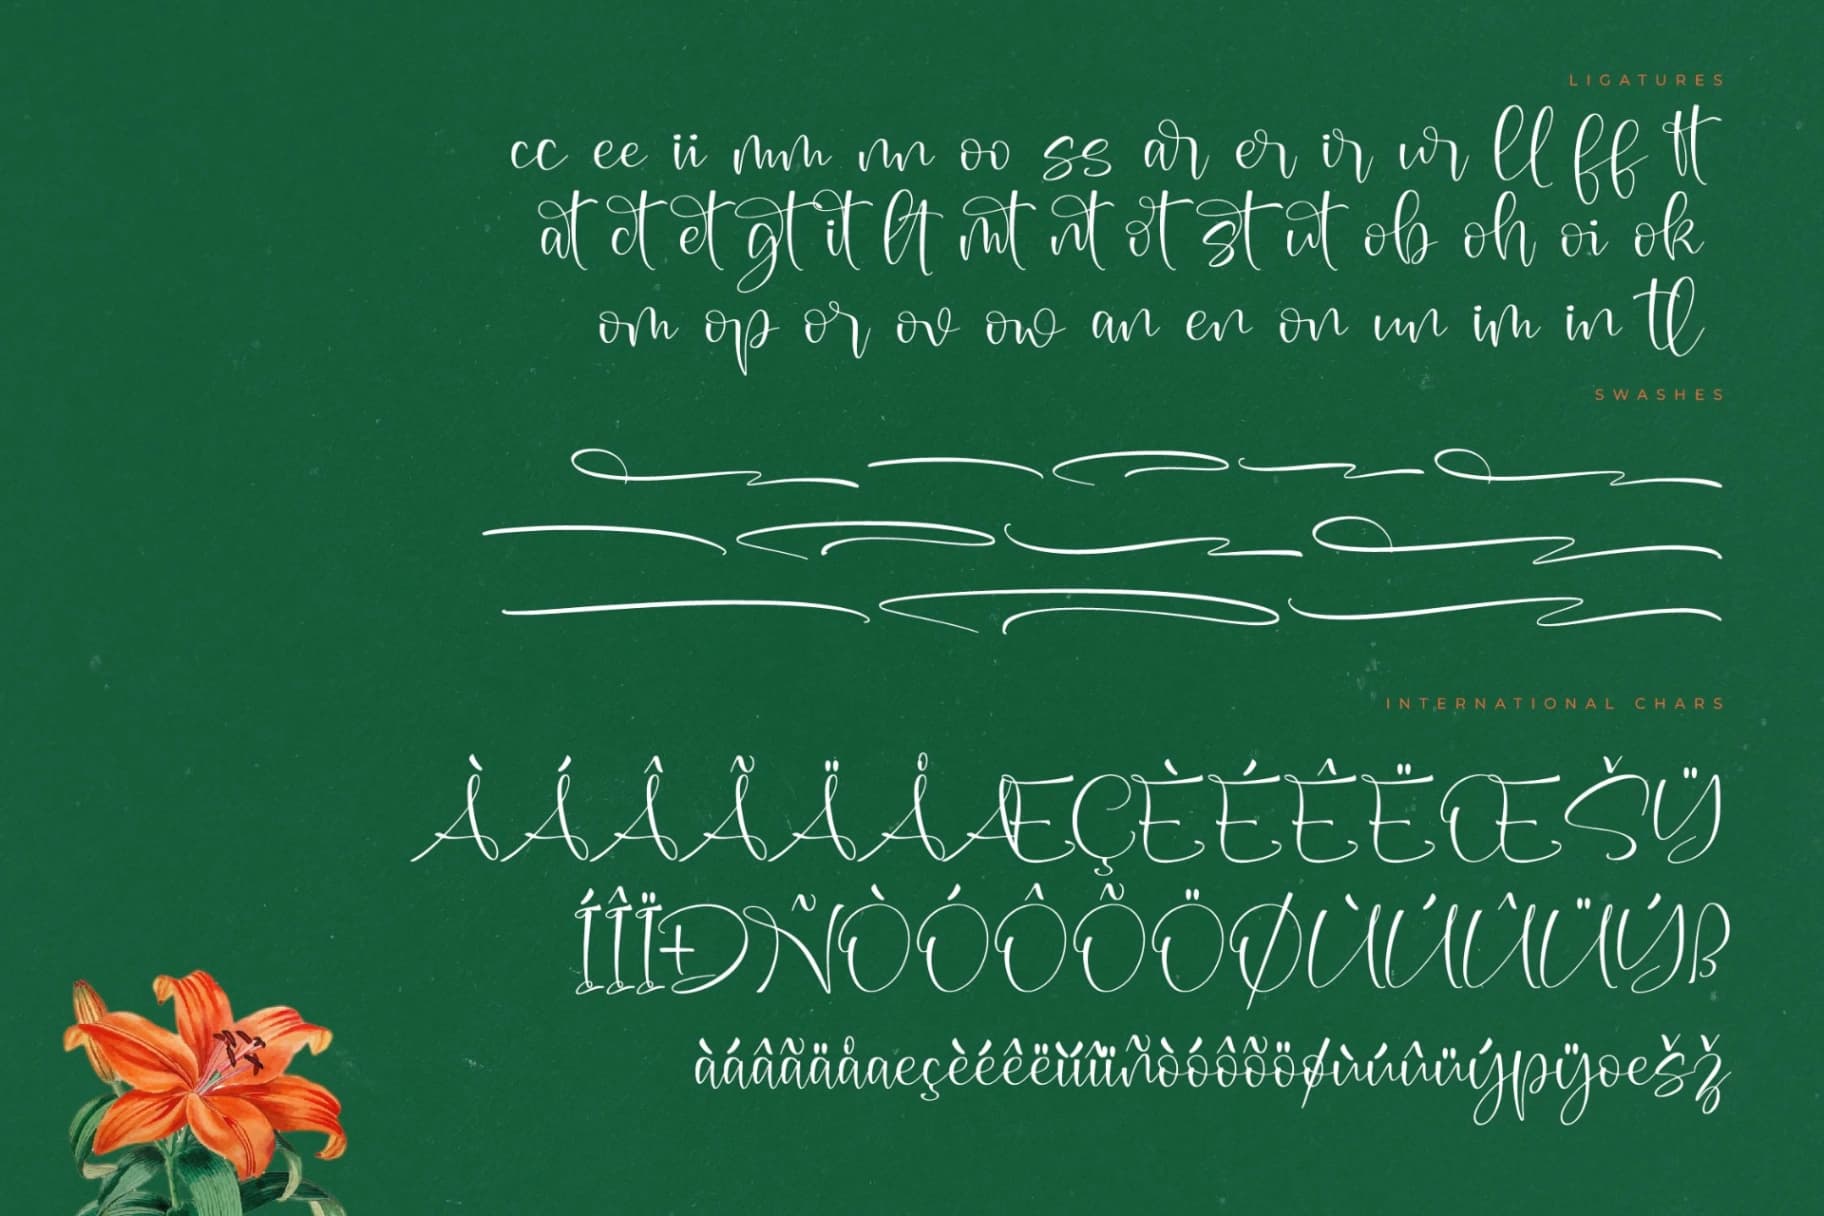 LIGATURES
cc ee ii mm nn oo ss ar er ir ur ll ff tt
at ct et gt it lt mt nt ot st ut ob oh oi ok
om op or ov ow an en on un im in tl
SWASHES
INTERNATIONAL CHARS
ÀÁÂÃÄÅÆÇÈÉÊËŒŠŸ
ÍÎÏÐÑÒÓÔÕÖØÙÚÛÜÝß
àáâãäåæçèéêëìíîïñòóôõöøùúûüýþÿœšž